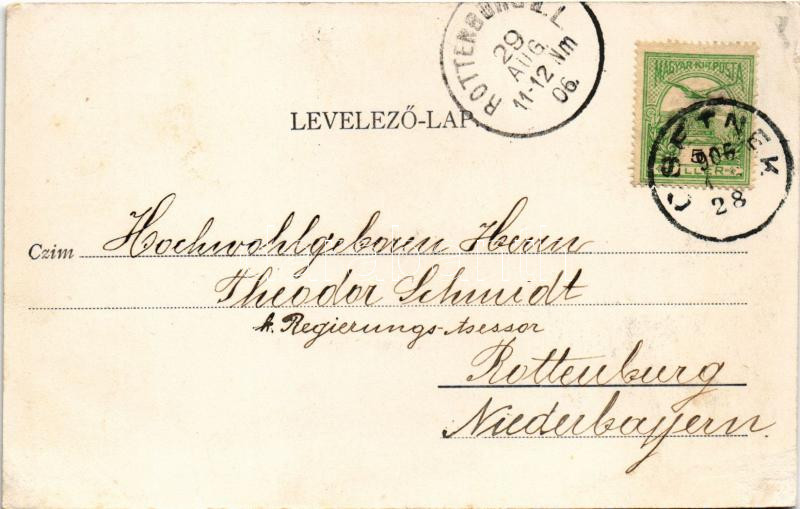 ROTTENBURG a.L.
29
AUG.
11-12 Nm
06.
MAGYAR KIR. POSTA
5
FILLÉR
CSETNEK
905
28
LEVELEZŐ-LAP.
Czim Hochwohlgeboren Herrn
Theodor Schmidt
k. Regierungs-Asessor
Rottenburg
Niederbayern.